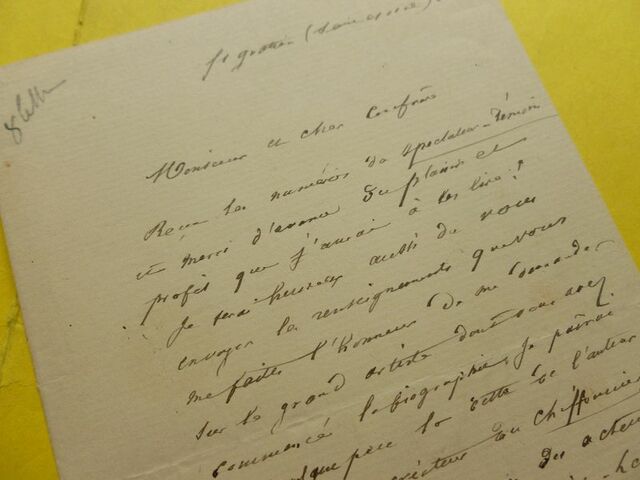 St gratien (Seine et oise)
8 lettres
Monsieur et cher confrère
Reçu les numéros du spectateur-témoin
et merci d'avance du plaisir et
profit que j'aurai à les lire!
Je serai heureux aussi de vous
envoyer les renseignements que vous
me faites l'honneur de me demander
sur le grand artiste dont vous avez
commencé la biographie. Je
que par la dette de l'auteur
du chiffonnier